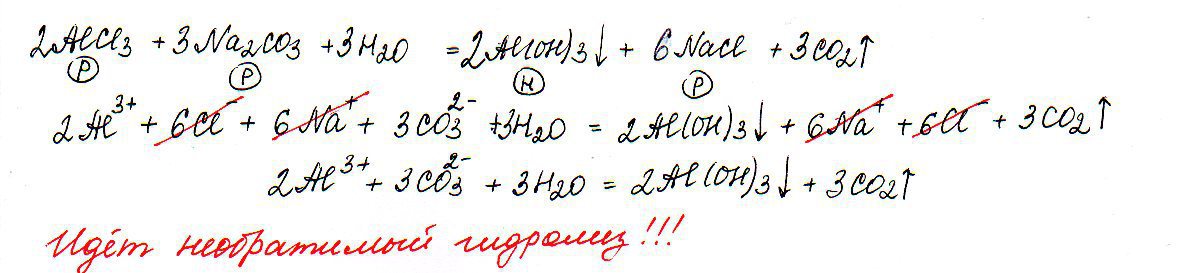 2AlCl₃ + 3Na₂CO₃ + 3H₂O = 2Al(OH)₃↓ + 6NaCl + 3CO₂↑
Р Р Н Р
2Al³⁺ + 6Cl⁻ + 6Na⁺ + 3CO₃²⁻ + 3H₂O = 2Al(OH)₃↓ + 6Na⁺ + 6Cl⁻ + 3CO₂↑
2Al³⁺ + 3CO₃²⁻ + 3H₂O = 2Al(OH)₃↓ + 3CO₂↑
Идёт необратимый гидролиз!!!